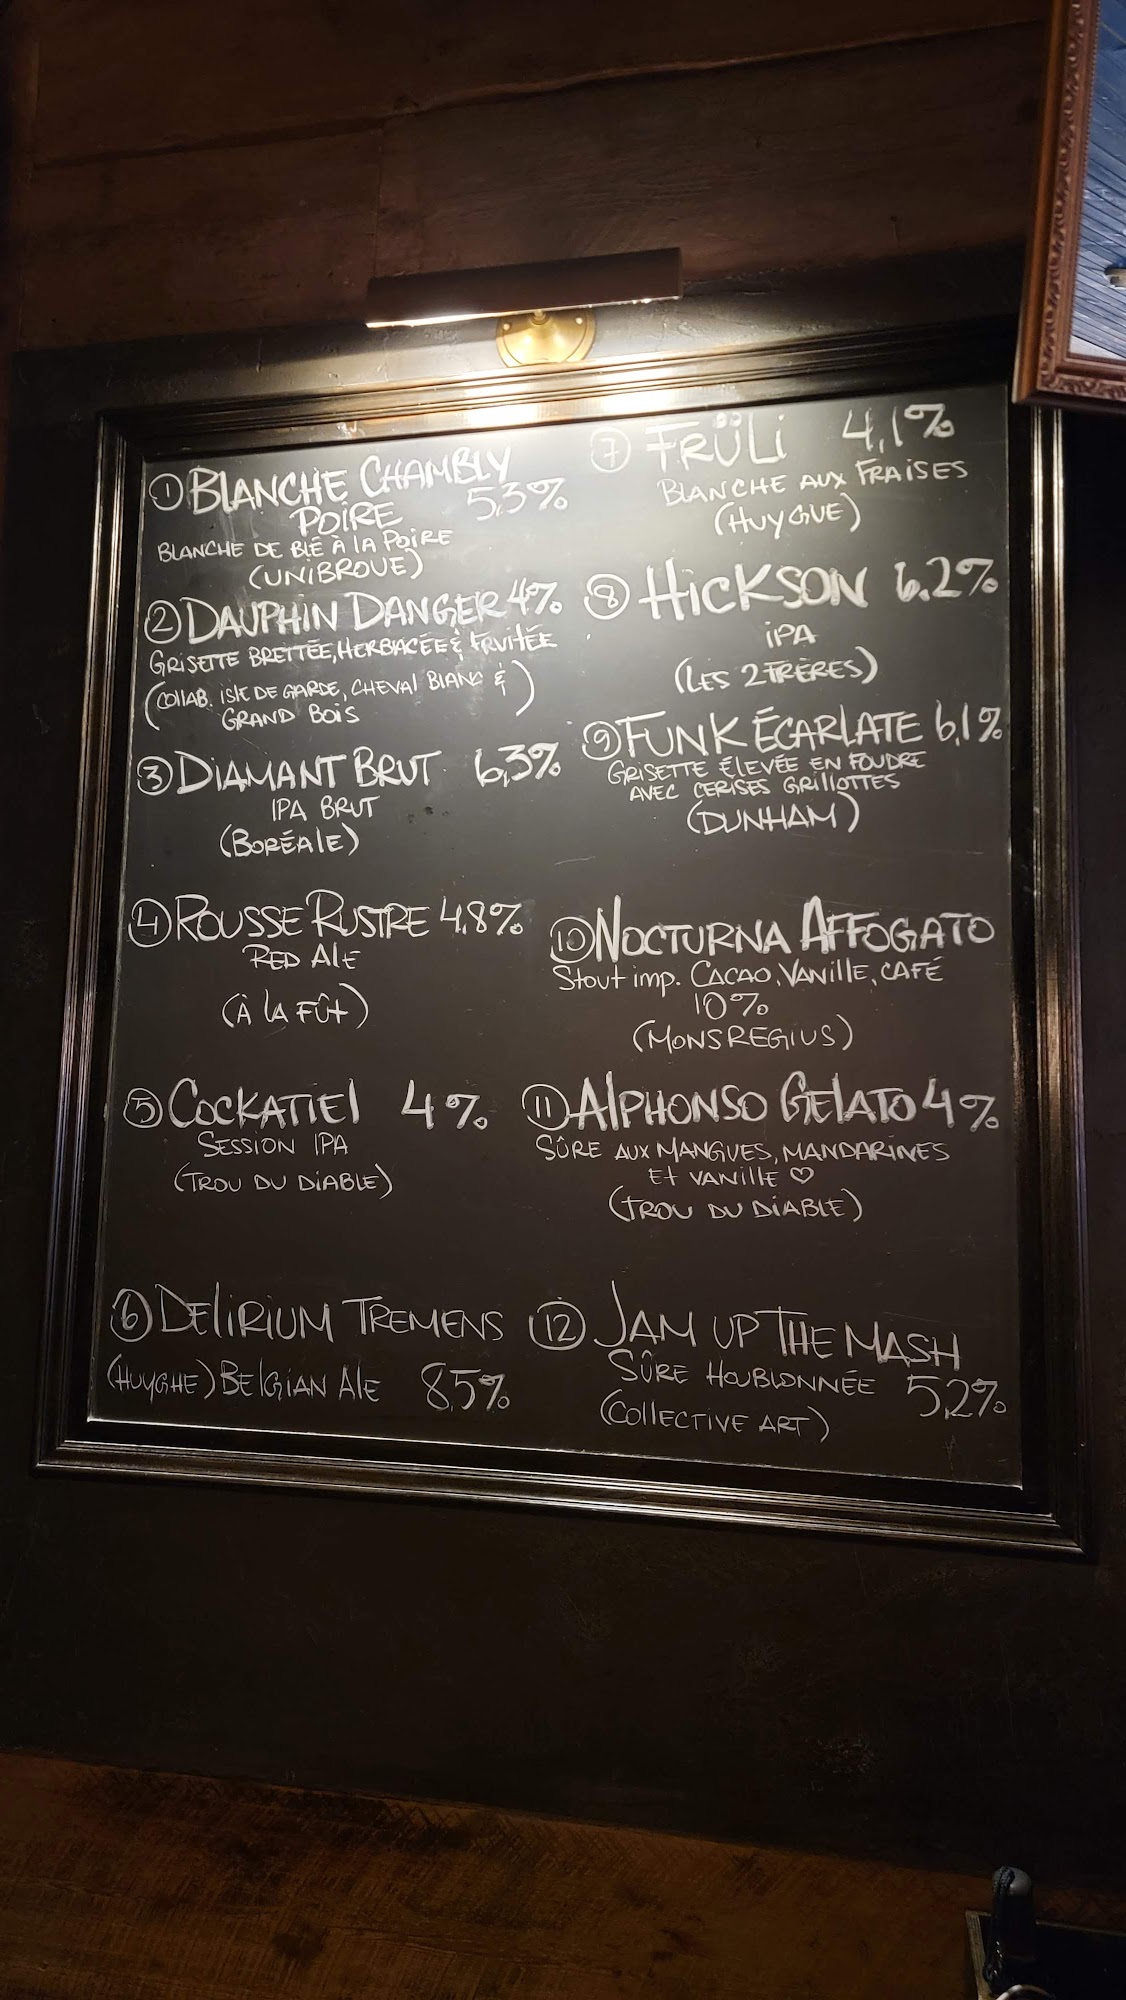 1 BLANCHE CHAMBLY
POIRE 5,3%
BLANCHE DE BLÉ À LA POIRE
(UNIBROUE)
2 DAUPHIN DANGER 4%
GRISETTE BRETTÉE, HERBACÉE & FRUITÉE
(COLLAB. ISLE DE GARDE, CHEVAL BLANC &
GRAND BOIS)
3 DIAMANT BRUT 6,3%
IPA BRUT
(BORÉALE)
4 ROUSSE RUSTRE 4,8%
RED ALE
(À LA FÛT)
5 COCKATIEL 4%
SESSION IPA
(TROU DU DIABLE)
6 DELIRIUM TREMENS
(HUYGHE) BELGIAN ALE 8,5%
7 FRÜLI 4,1%
BLANCHE AUX FRAISES
(HUYGUE)
8 HICKSON 6,2%
IPA
(LES 2 FRÈRES)
9 FUNK ÉCARLATE 6,1%
GRISETTE ÉLEVÉE EN FOUDRE
AVEC CERISES GRILLOTTES
(DUNHAM)
10 NOCTURNA AFFOGATO
Stout imp. CACAO, VANILLE, CAFÉ
10%
(MONSREGIUS)
11 ALPHONSO GELATO 4%
SÛRE AUX MANGUES, MANDARINES
ET VANILLE ♡
(TROU DU DIABLE)
12 JAM UP THE MASH
SÛRE HOUBLONNÉE 5,2%
(COLLECTIVE ART)